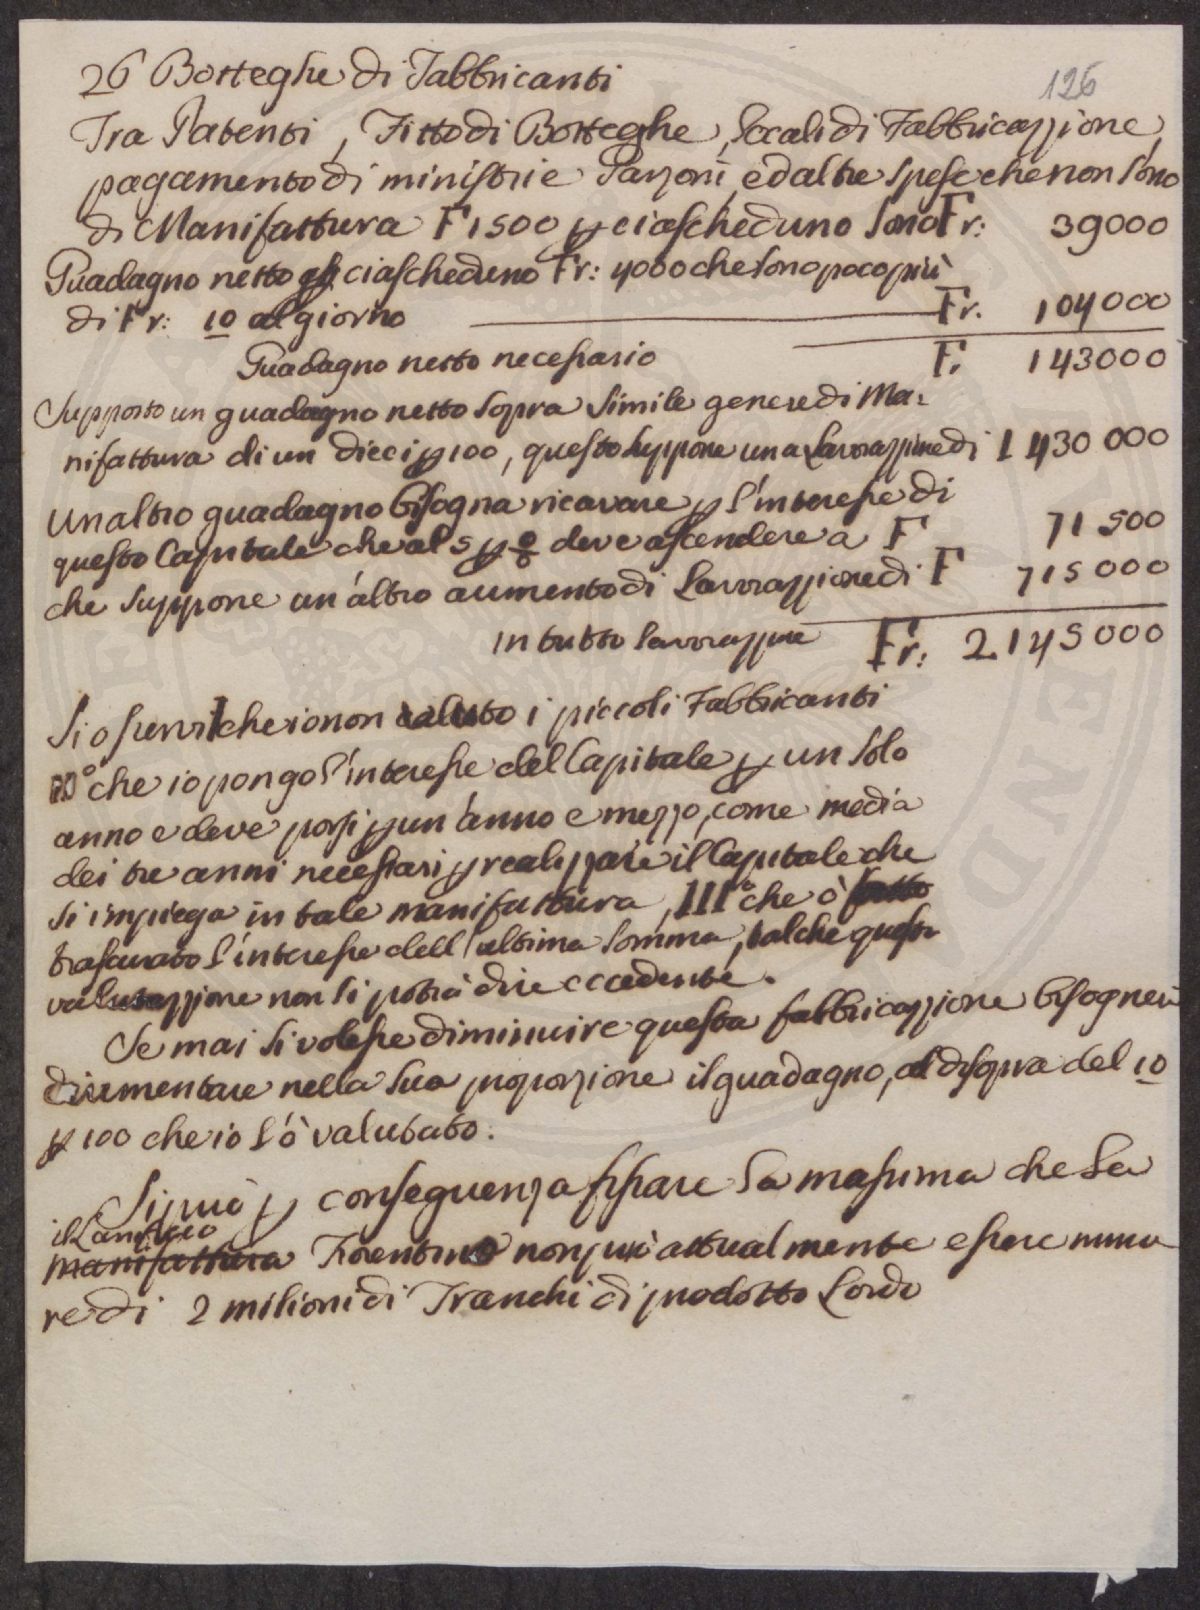 126
26 Botteghe di Fabbricanti
Tra Patenti, Fitto di Botteghe, Locali di Fabbricazzione,
pagamento di ministri e Garzoni, ed altre spese che non sono
di Manifattura F 1500 p ciascheduno sono Fr: 39000
Guadagno netto p ciascheduno Fr: 4000 che sono poco più
di Fr: 10 al giorno Fr. 104000
Guadagno netto necessario F. 143000
Supposto un guadagno netto sopra simile genere di Ma=
nifattura di un dieci p 100, questo suppone una Lavorazzione di 1430 000
Un altro guadagno bisogna ricavare p l'interesse di
questo Capitale che al 5 p % deve ascendere a F 71500
che suppone un'altro aumento di Lavorazzione di F 715000
in tutto Lavorazzione Fr: 2.145000
Si osservi che io non valuto i piccoli Fabbricanti
che io pongo l'interesse del Capitale p un solo
anno e deve porsi p un'anno e mezzo, come media
dei tre anni necessari p realizzare il Capitale che
si impiega in tale manifattura, III° che ò fatto
trascurato l'interesse dell'ultima somma, talche questa
valutazzione non si potrà dire eccedente.
Se mai si volesse diminuire questa fabbricazzione bisognerà
aumentare nella sua proporzione il guadagno, al disopra del 10
p 100 che io l'ò valutato.
Si può p conseguenza fissare la massima che la
il Lanificio
manifattura Fiorentino non può attualmente essere mino
re di 2 milioni di Franchi di prodotto Lordo